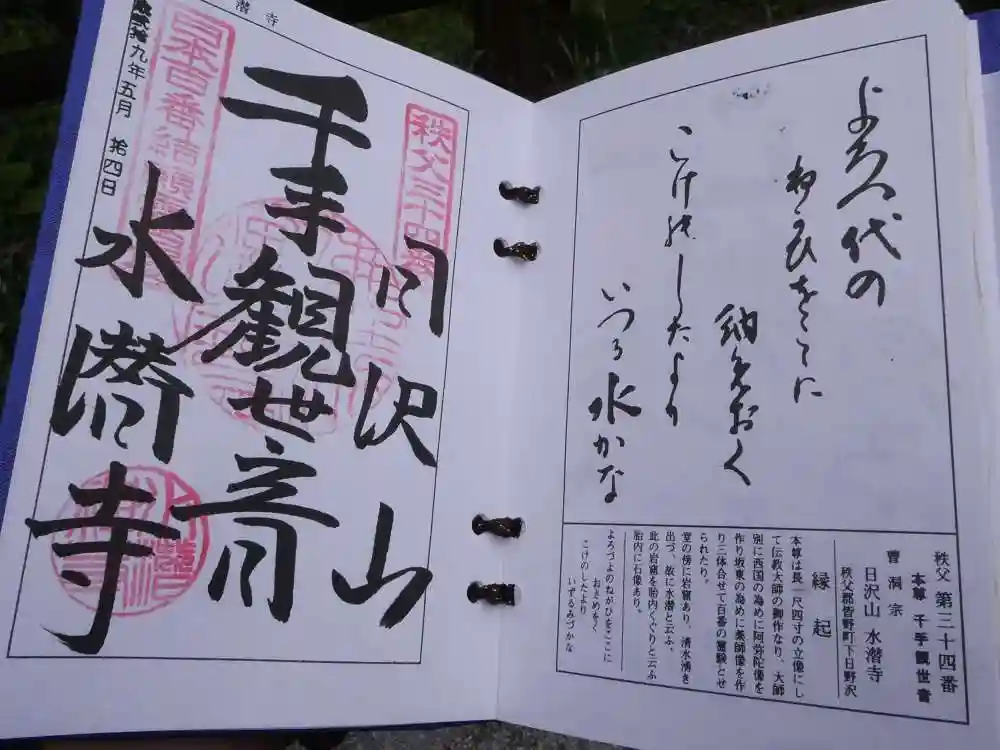 よろづ代の
ねがひをここに
納めおく
こけのしたより
いづる水かな
秩父 第三十四番
本尊 千手観世音
曹洞宗
日沢山 水潜寺
秩父郡皆野町下日野沢
縁起
本尊は長一尺四寸の立像にし
て伝教大師の御作なり、大師
別に西国の為めに阿弥陀像を
作り坂東の為めに薬師像を作
り三体合せて百番の霊験とせ
られたり。
堂の傍に岩窟あり、清水湧き
出づ、故に水潜と云ふ。
此の岩窟を胎内くぐりと云ふ
胎内に石像あり。
よろづよのねがひをここに
おさめをく
こけのしたより
いずるみづかな
潜寺
秩父三十四番
日沢山
千手観世音
水潜寺
日本百番結願
拾九年五月 拾四日